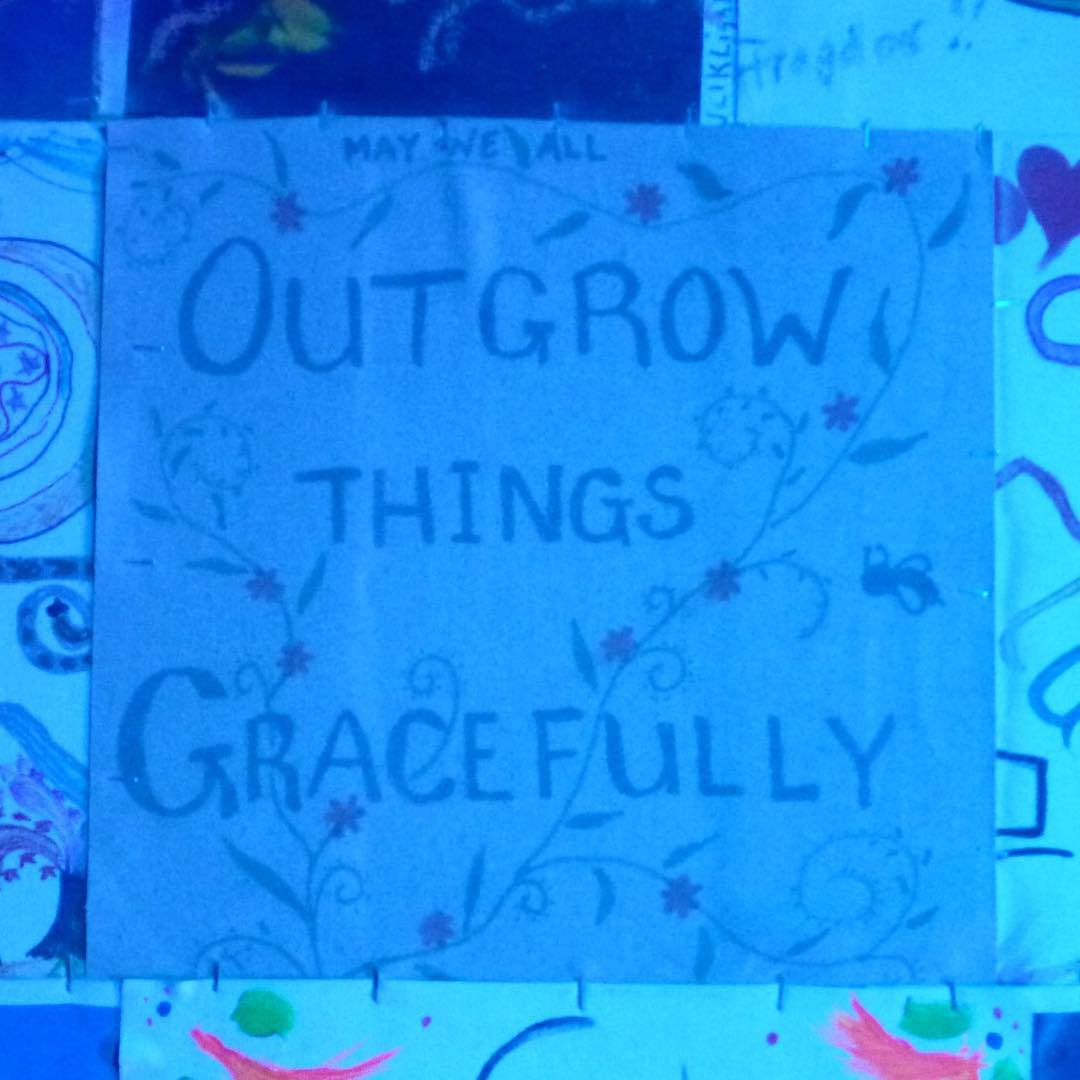 MAY WE ALL
OUTGROW
THINGS
GRACEFULLY